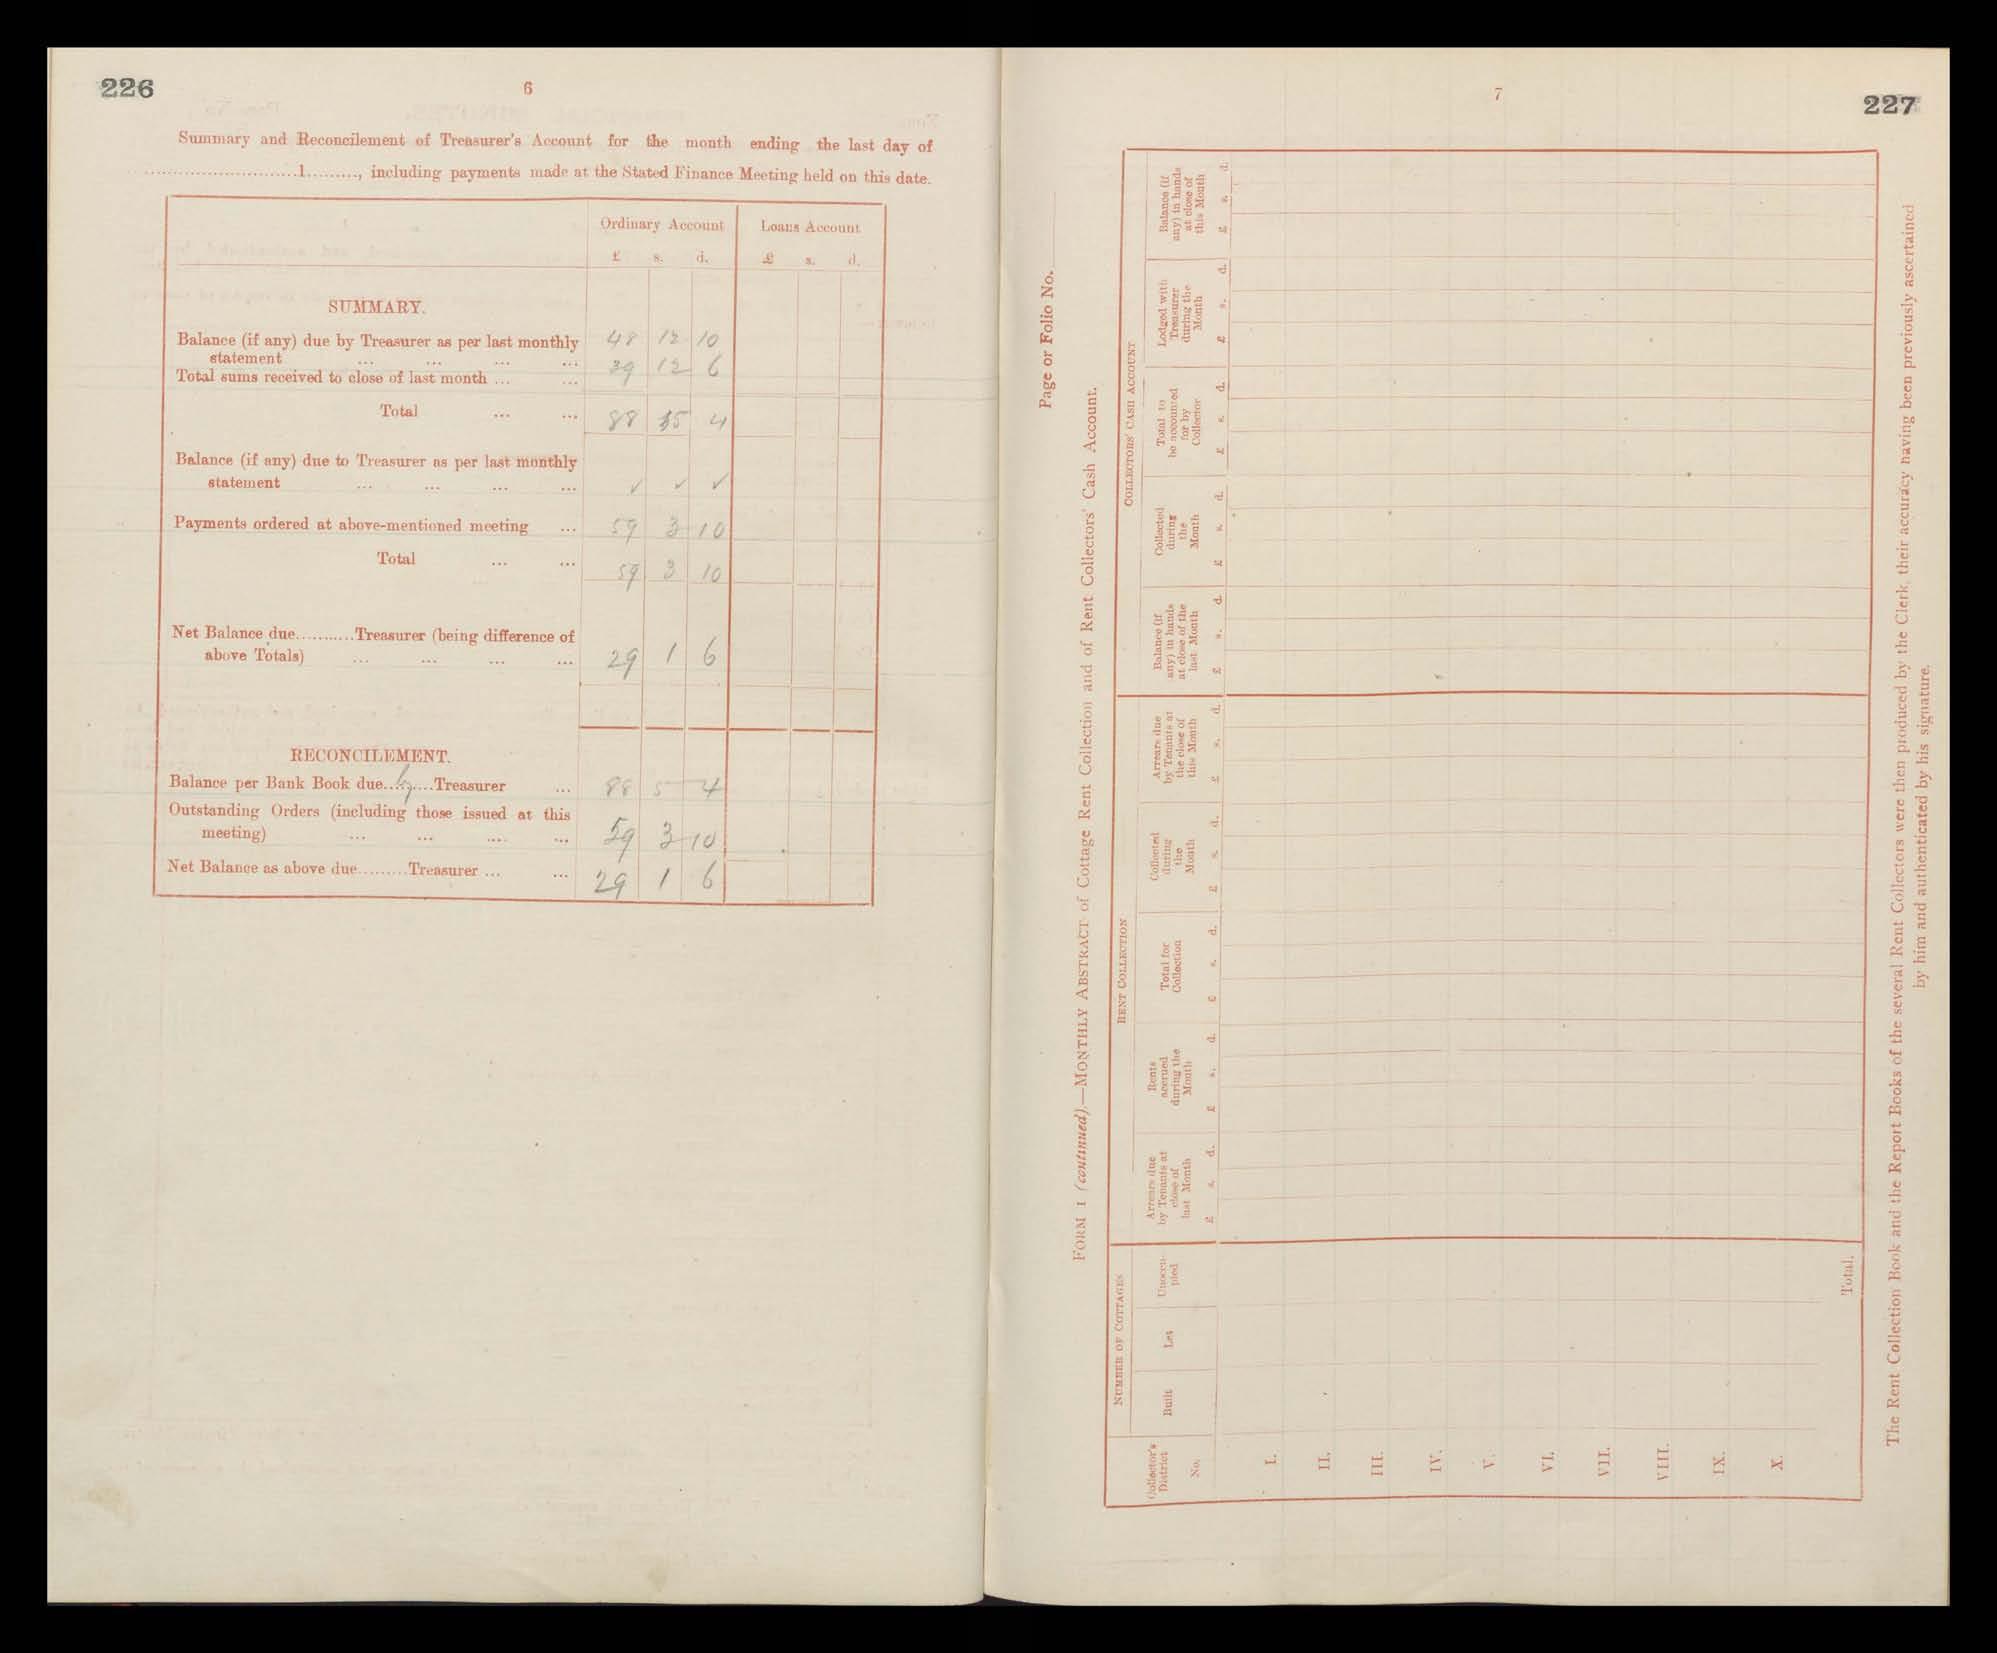 226
6
Summary and Reconcilement of Treasurer's Account for the month ending the last day of
............................1........., including payments made at the Stated Finance Meeting held on this date.
Ordinary Account Loans Account
£ s. d. £ s. d.
SUMMARY.
Balance (if any) due by Treasurer as per last monthly
statement ... ... ... ... 48 12 10
Total sums received to close of last month ... ... 39 12 6
Total ... ... 88 5 4
Balance (if any) due to Treasurer as per last monthly
statement ... ... ... ... ✓ ✓ ✓
Payments ordered at above-mentioned meeting ... 59 3 10
Total ... ... 59 3 10
Net Balance due...........Treasurer (being difference of
above Totals) ... ... ... ... 29 1 6
RECONCILEMENT.
Balance per Bank Book due...by....Treasurer ... 88 5 4
Outstanding Orders (including those issued at this
meeting) ... ... ... ... 59 3 10
Net Balance as above due.........Treasurer ... ... 29 1 6
7
227
Page or Folio No.
FORM 1 (continued).—MONTHLY ABSTRACT of Cottage Rent Collection and of Rent Collectors' Cash Account.
NUMBER OF COTTAGES RENT COLLECTION COLLECTORS' CASH ACCOUNT
Collector's
District
No.
Built
Let
Unoccu-
pied
Arrears due
by Tenants at
close of
last Month
£ s. d.
Rents
accrued
during the
Month
£ s. d.
Total for
Collection
£ s. d.
Collected
during
the
Month
£ s. d.
Arrears due
by Tenants at
the close of
this Month
£ s. d.
Balance (if
any) in hands
at close of the
last Month
£ s. d.
Collected
during
the
Month
£ s. d.
Total to
be accounted
for by
Collector
£ s. d.
Lodged with
Treasurer
during the
Month
£ s. d.
Balance (if
any) in hands
at close of
this Month
£ s. d.
I.
II.
III.
IV.
V.
VI.
VII.
VIII.
IX.
X.
Total.
The Rent Collection Book and the Report Books of the several Rent Collectors were then produced by the Clerk, their accuracy having been previously ascertained
by him and authenticated by his signature.